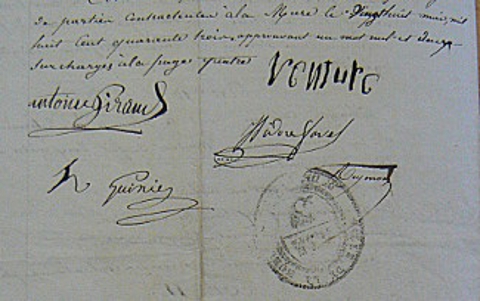 de parties contractantes à la Mure le vingt huit mai, mil
huit Cent quarante trois, approuvant un mot nul et
surchargés à la page quatre
Venture
Antoine Giraud
Isidore
Guinier
Reymond